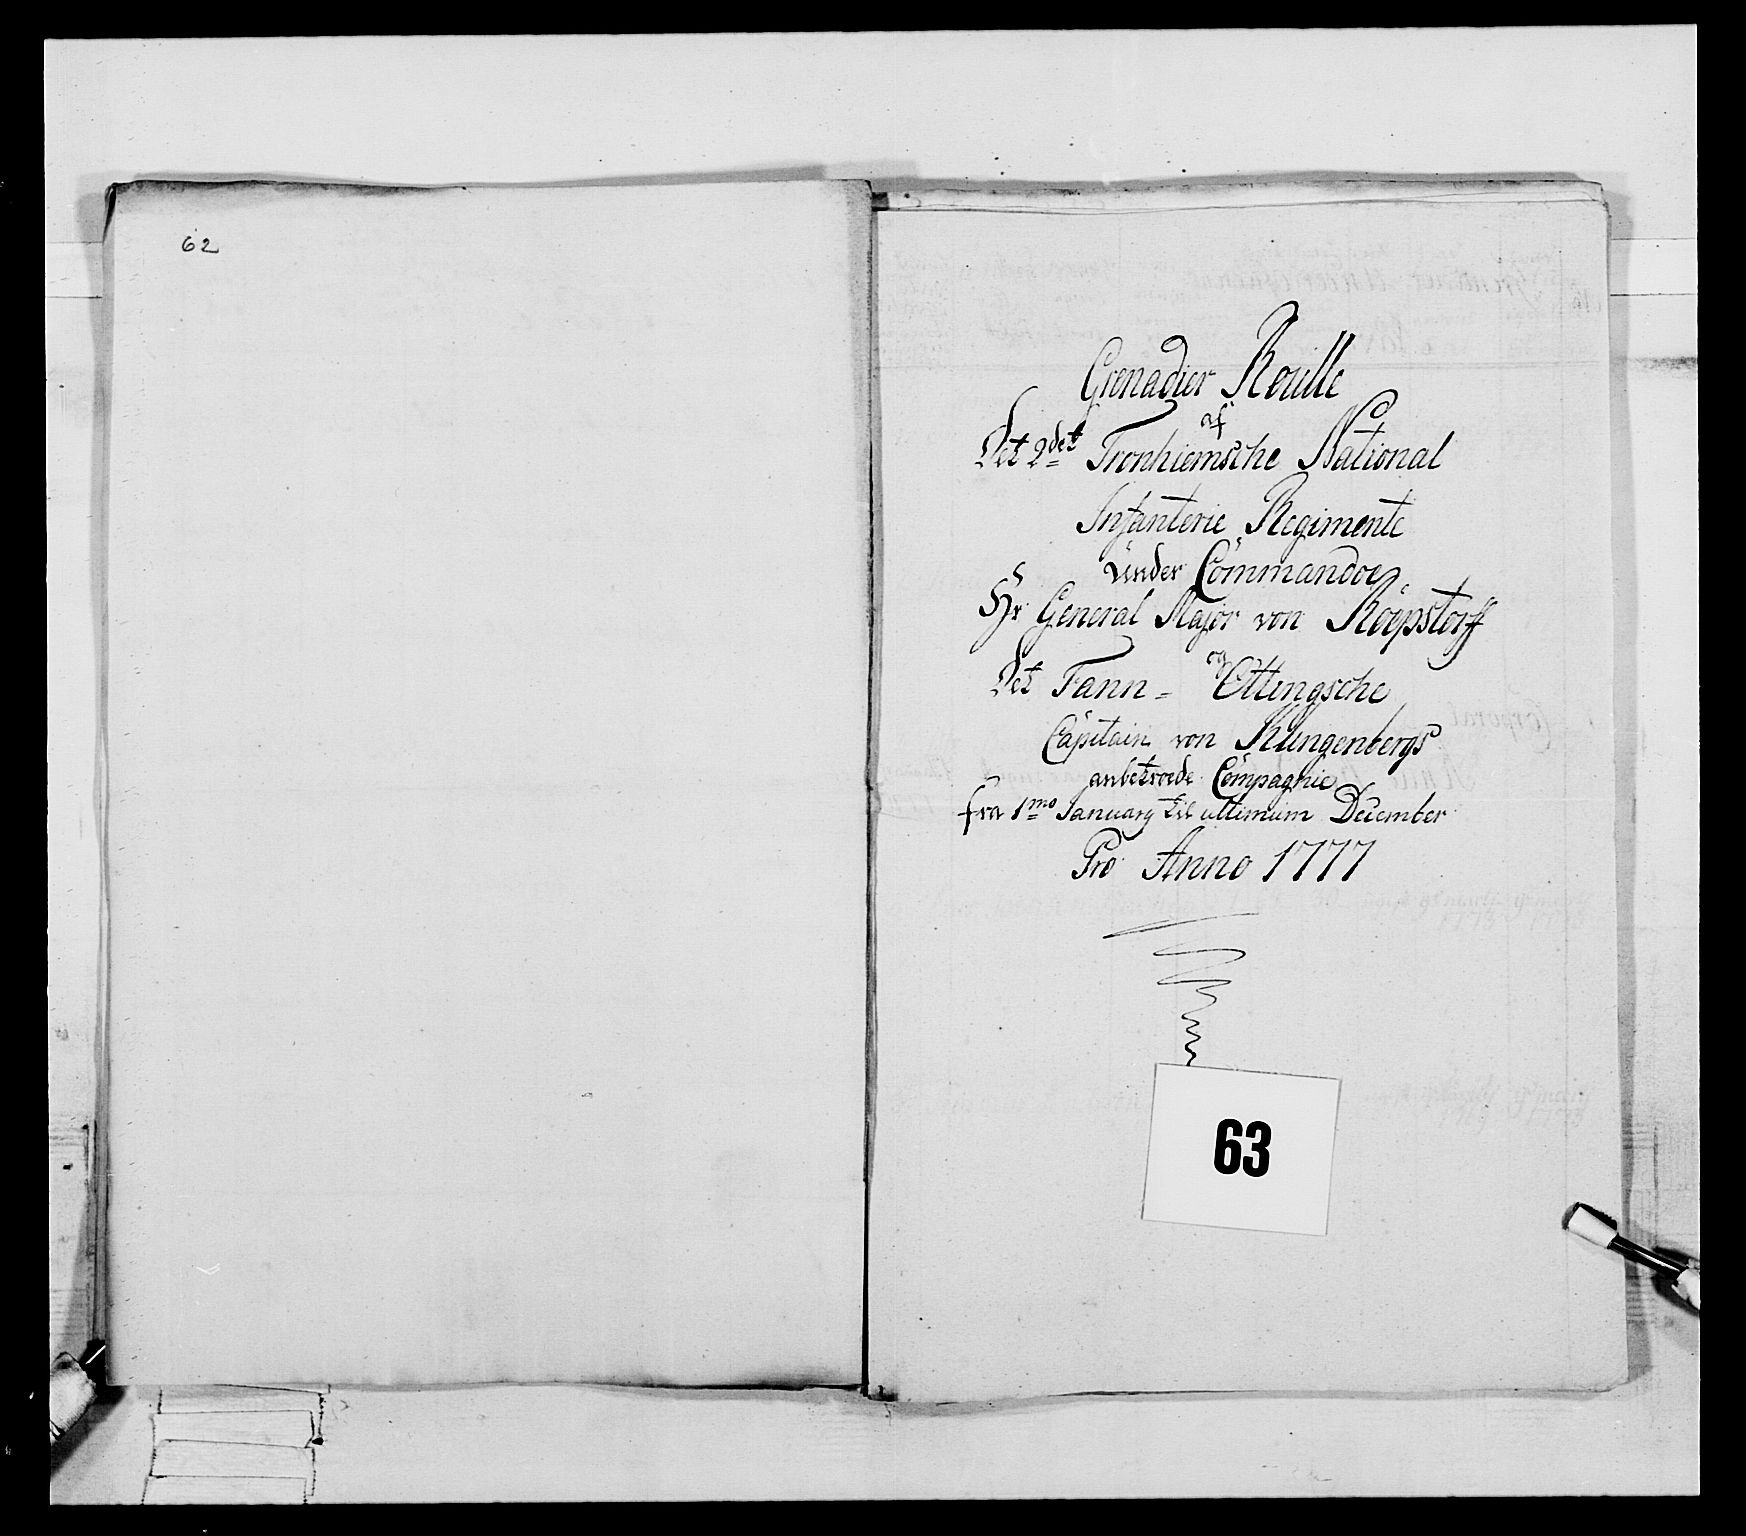 62
Grenadier Roulle
af
Det 2det Tronhiemsche National
Infanterie Regimente
under Commando
Hr General Major von Roepstorff
Det Fann- og Ottingsche
Capitain von Klingenbergs
anbetroede Compagnie
fra 1mo January til ultimum December
Pro Anno 1777
63